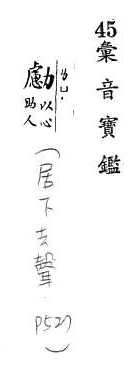 45彙音寶鑑
勴以心助人
(居下去聲 P527)